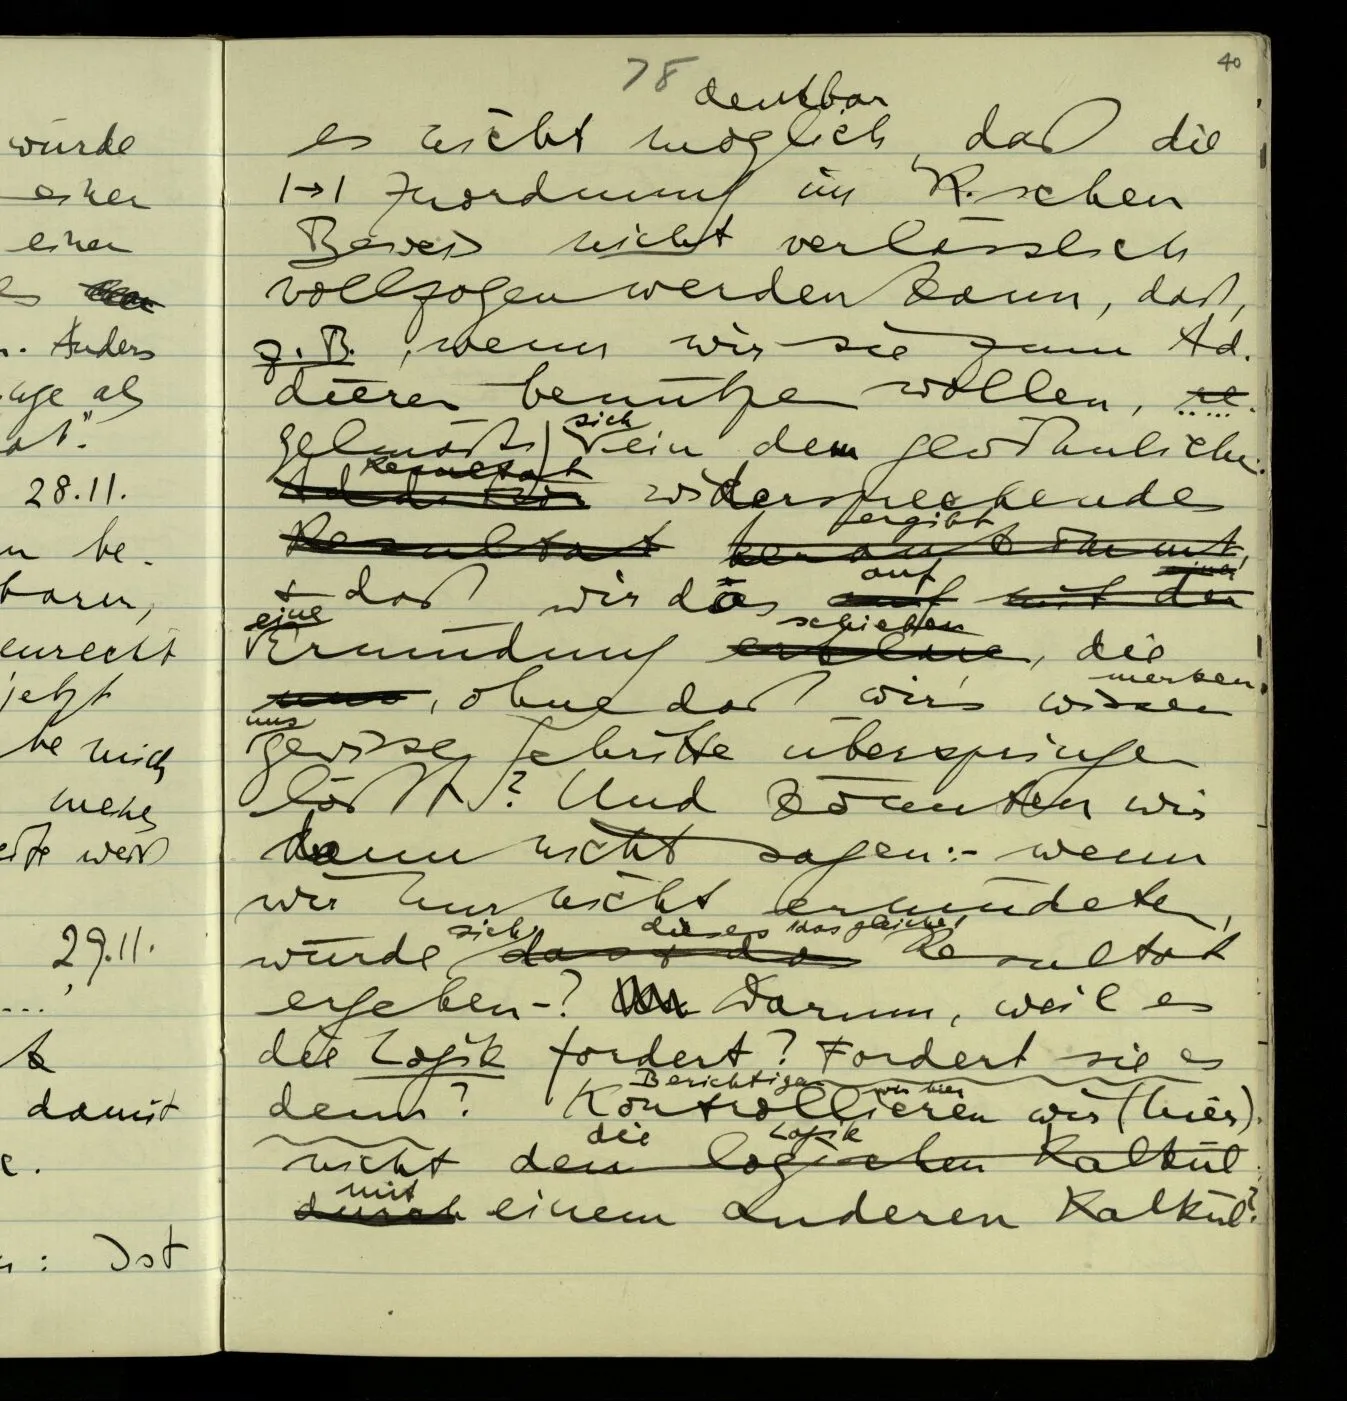 würde
einer
einen
n. Anders
age als
28.11.
n be-
baren,
enrecht
jetzt
be mich
weiß
29.11.
...'
damit
e.
: Ist
78
40
denkbar
es nicht möglich, daß die
1→1 Zuordnung im R.schen
Beweis nicht verlässlich
vollzogen werden kann, daß,
z.B., wenn wir sie zum Ad-
dieren benützen wollen, re-
gelmäßig sich ein dem gewöhnlichen
Resultat
widersprechendes
Resultat ergibt
+ daß wir das auf
eine schieben
Ermüdung erkläre, die
uns, ohne daß wir's wissen merken
uns
gewisse Schritte überspringen
läßt? Und könnten wir
dann nicht sagen:- wenn
wir nur nicht ermüdeten,
sich dieses 'das gleiche'
würde das + das Resultat
ergeben-? Darum, weil es
die Logik fordert? Fordert sie es
Berichtigen wir hier
denn? Kontrollieren wir (hier)
die Logik
nicht den logischen Kalkül
mit
durch einem anderen Kalkül?